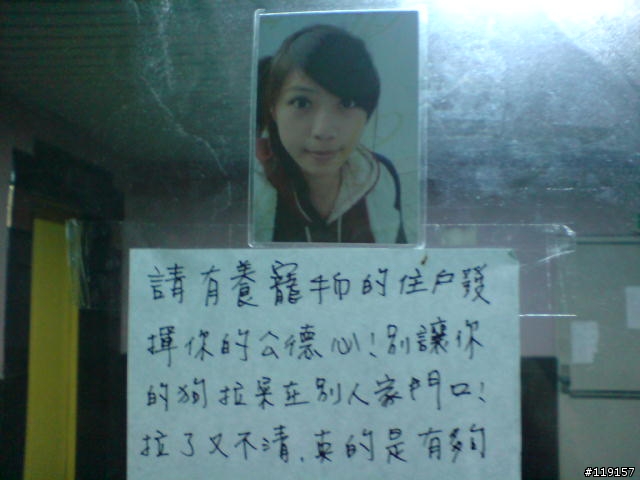 請有養寵物的住戶發
揮你的公德心!別讓你
的狗拉屎在別人家門口!
拉了又不清,真的是有夠
#119157